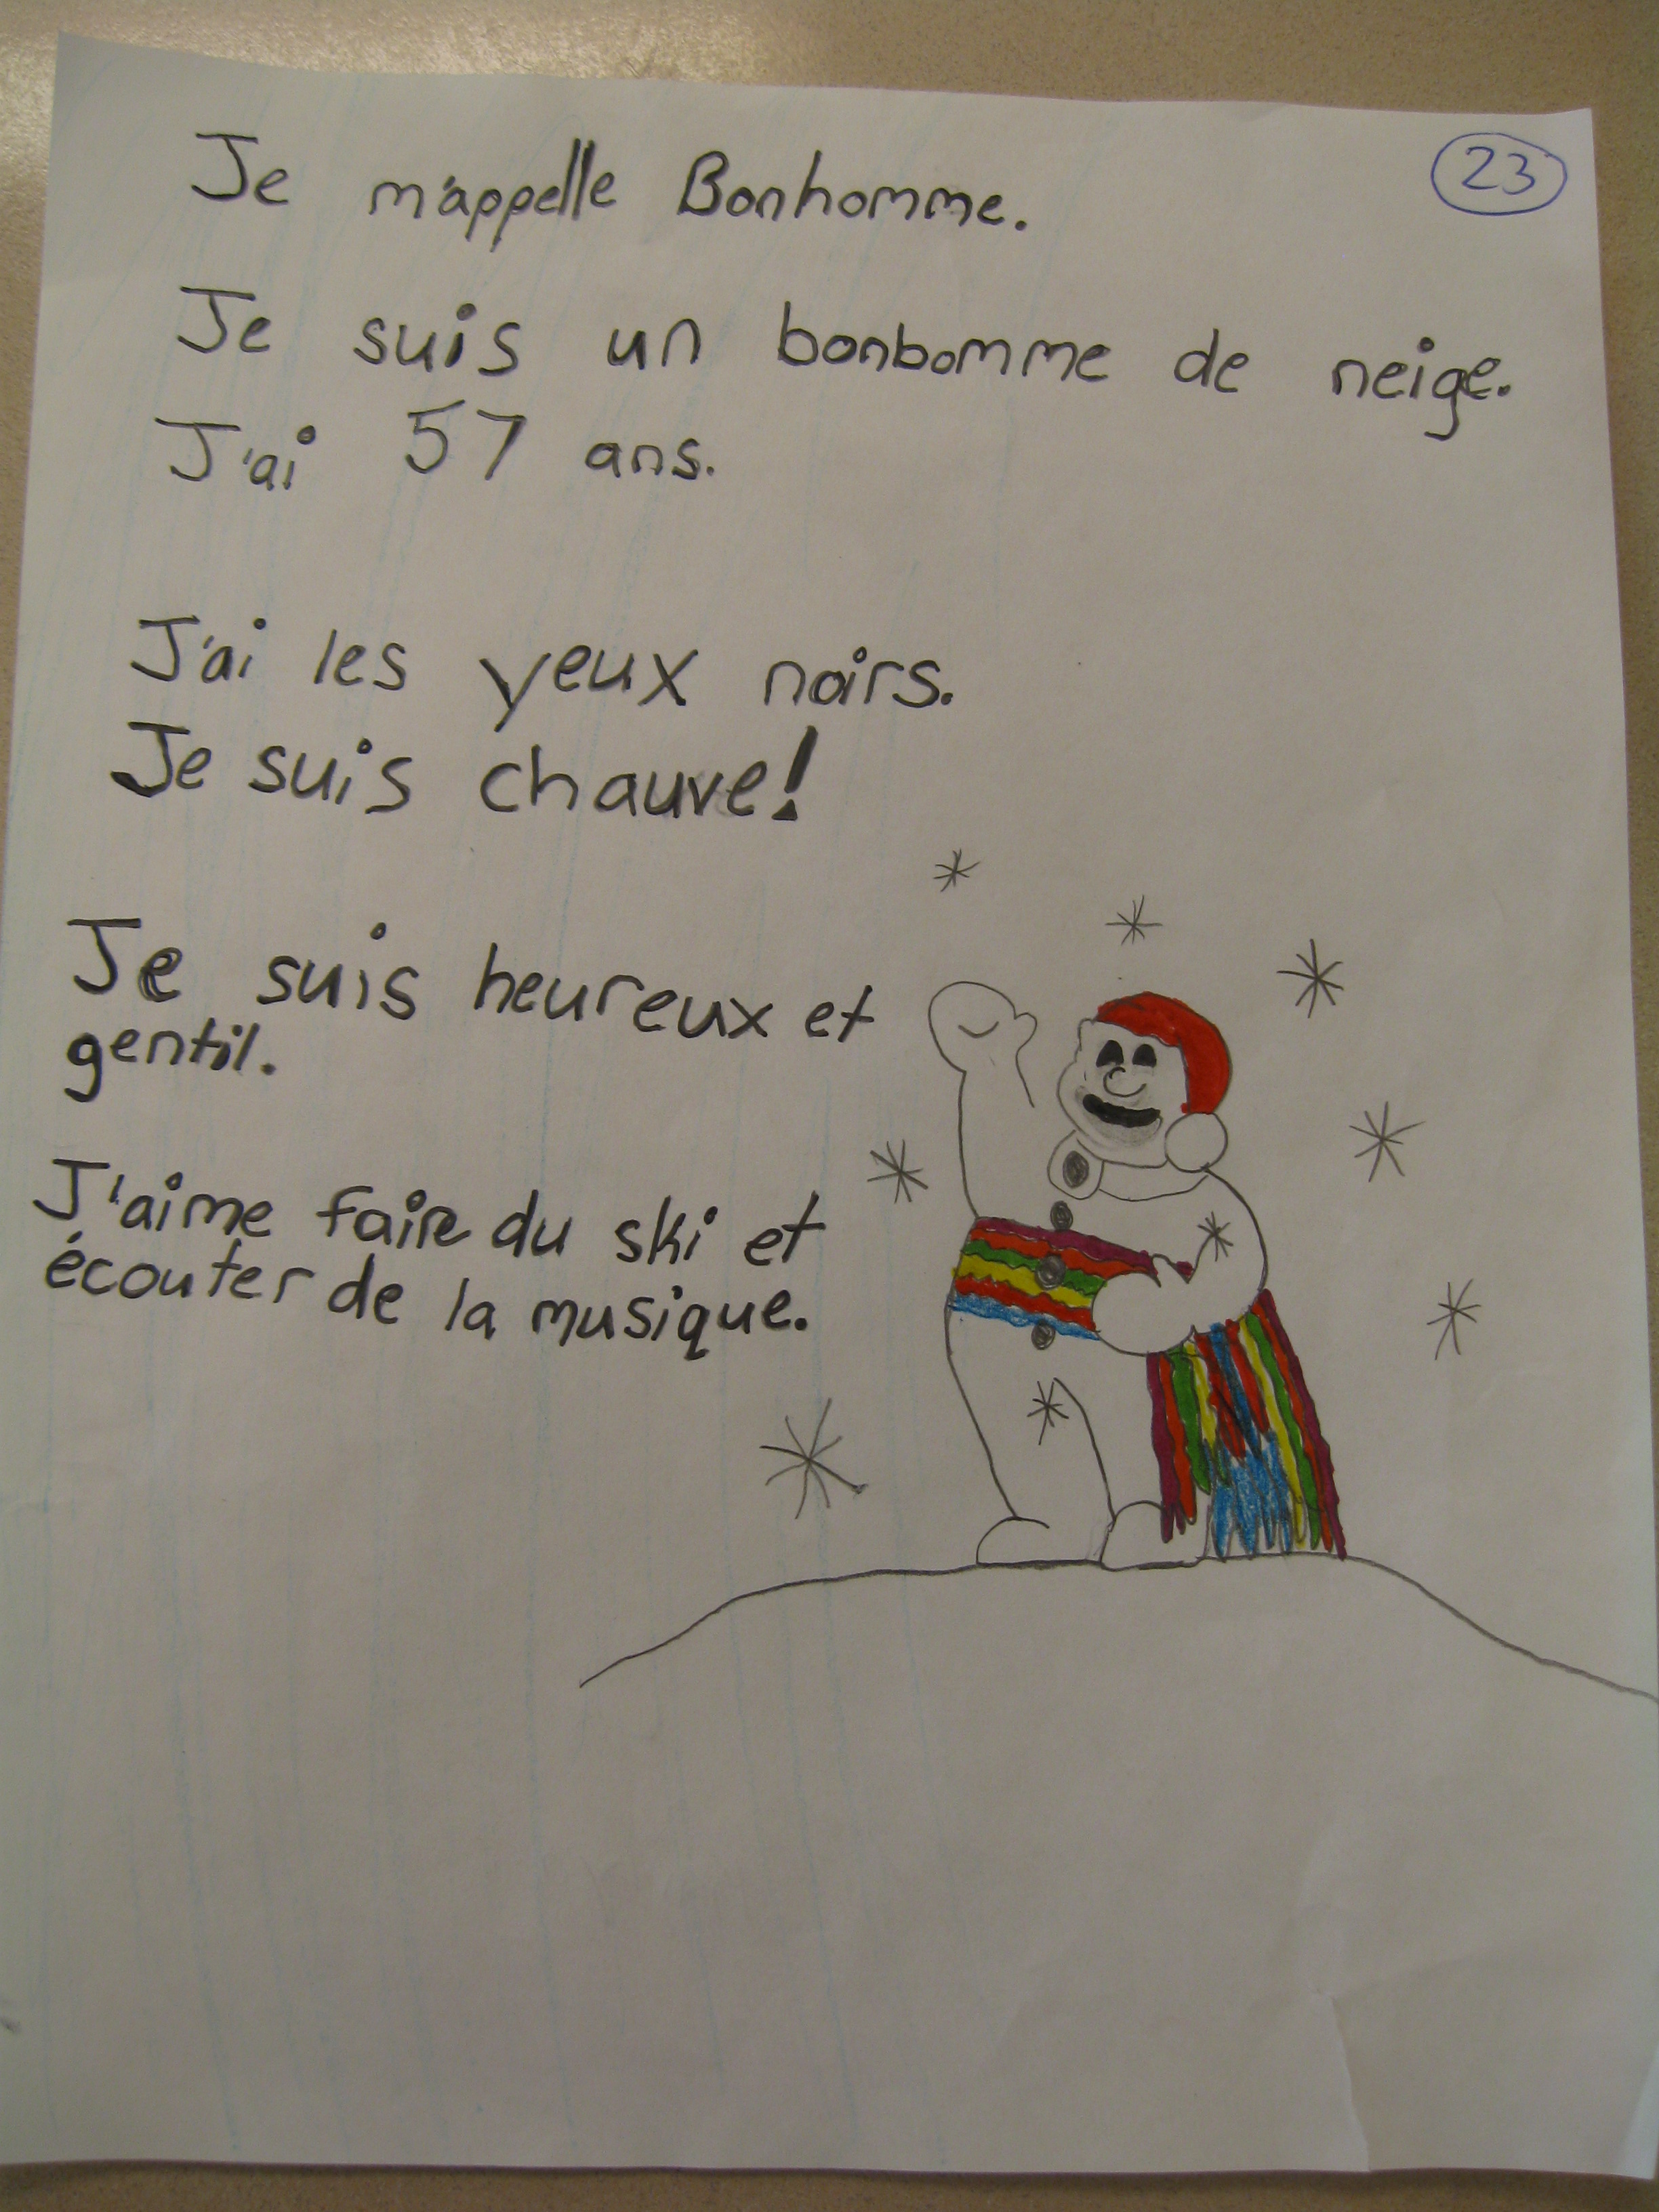 23
Je m'appelle Bonhomme.
Je suis un bonbomme de neige.
J'ai 57 ans.
J'ai les yeux noirs.
Je suis chauve!
Je suis heureux et
gentil.
J'aime faire du ski et
écouter de la musique.